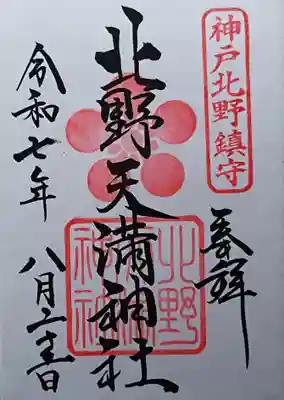 神戸北野鎮守
奉拝
北野天満神社
北野
神社
令和七年
八月二十三日